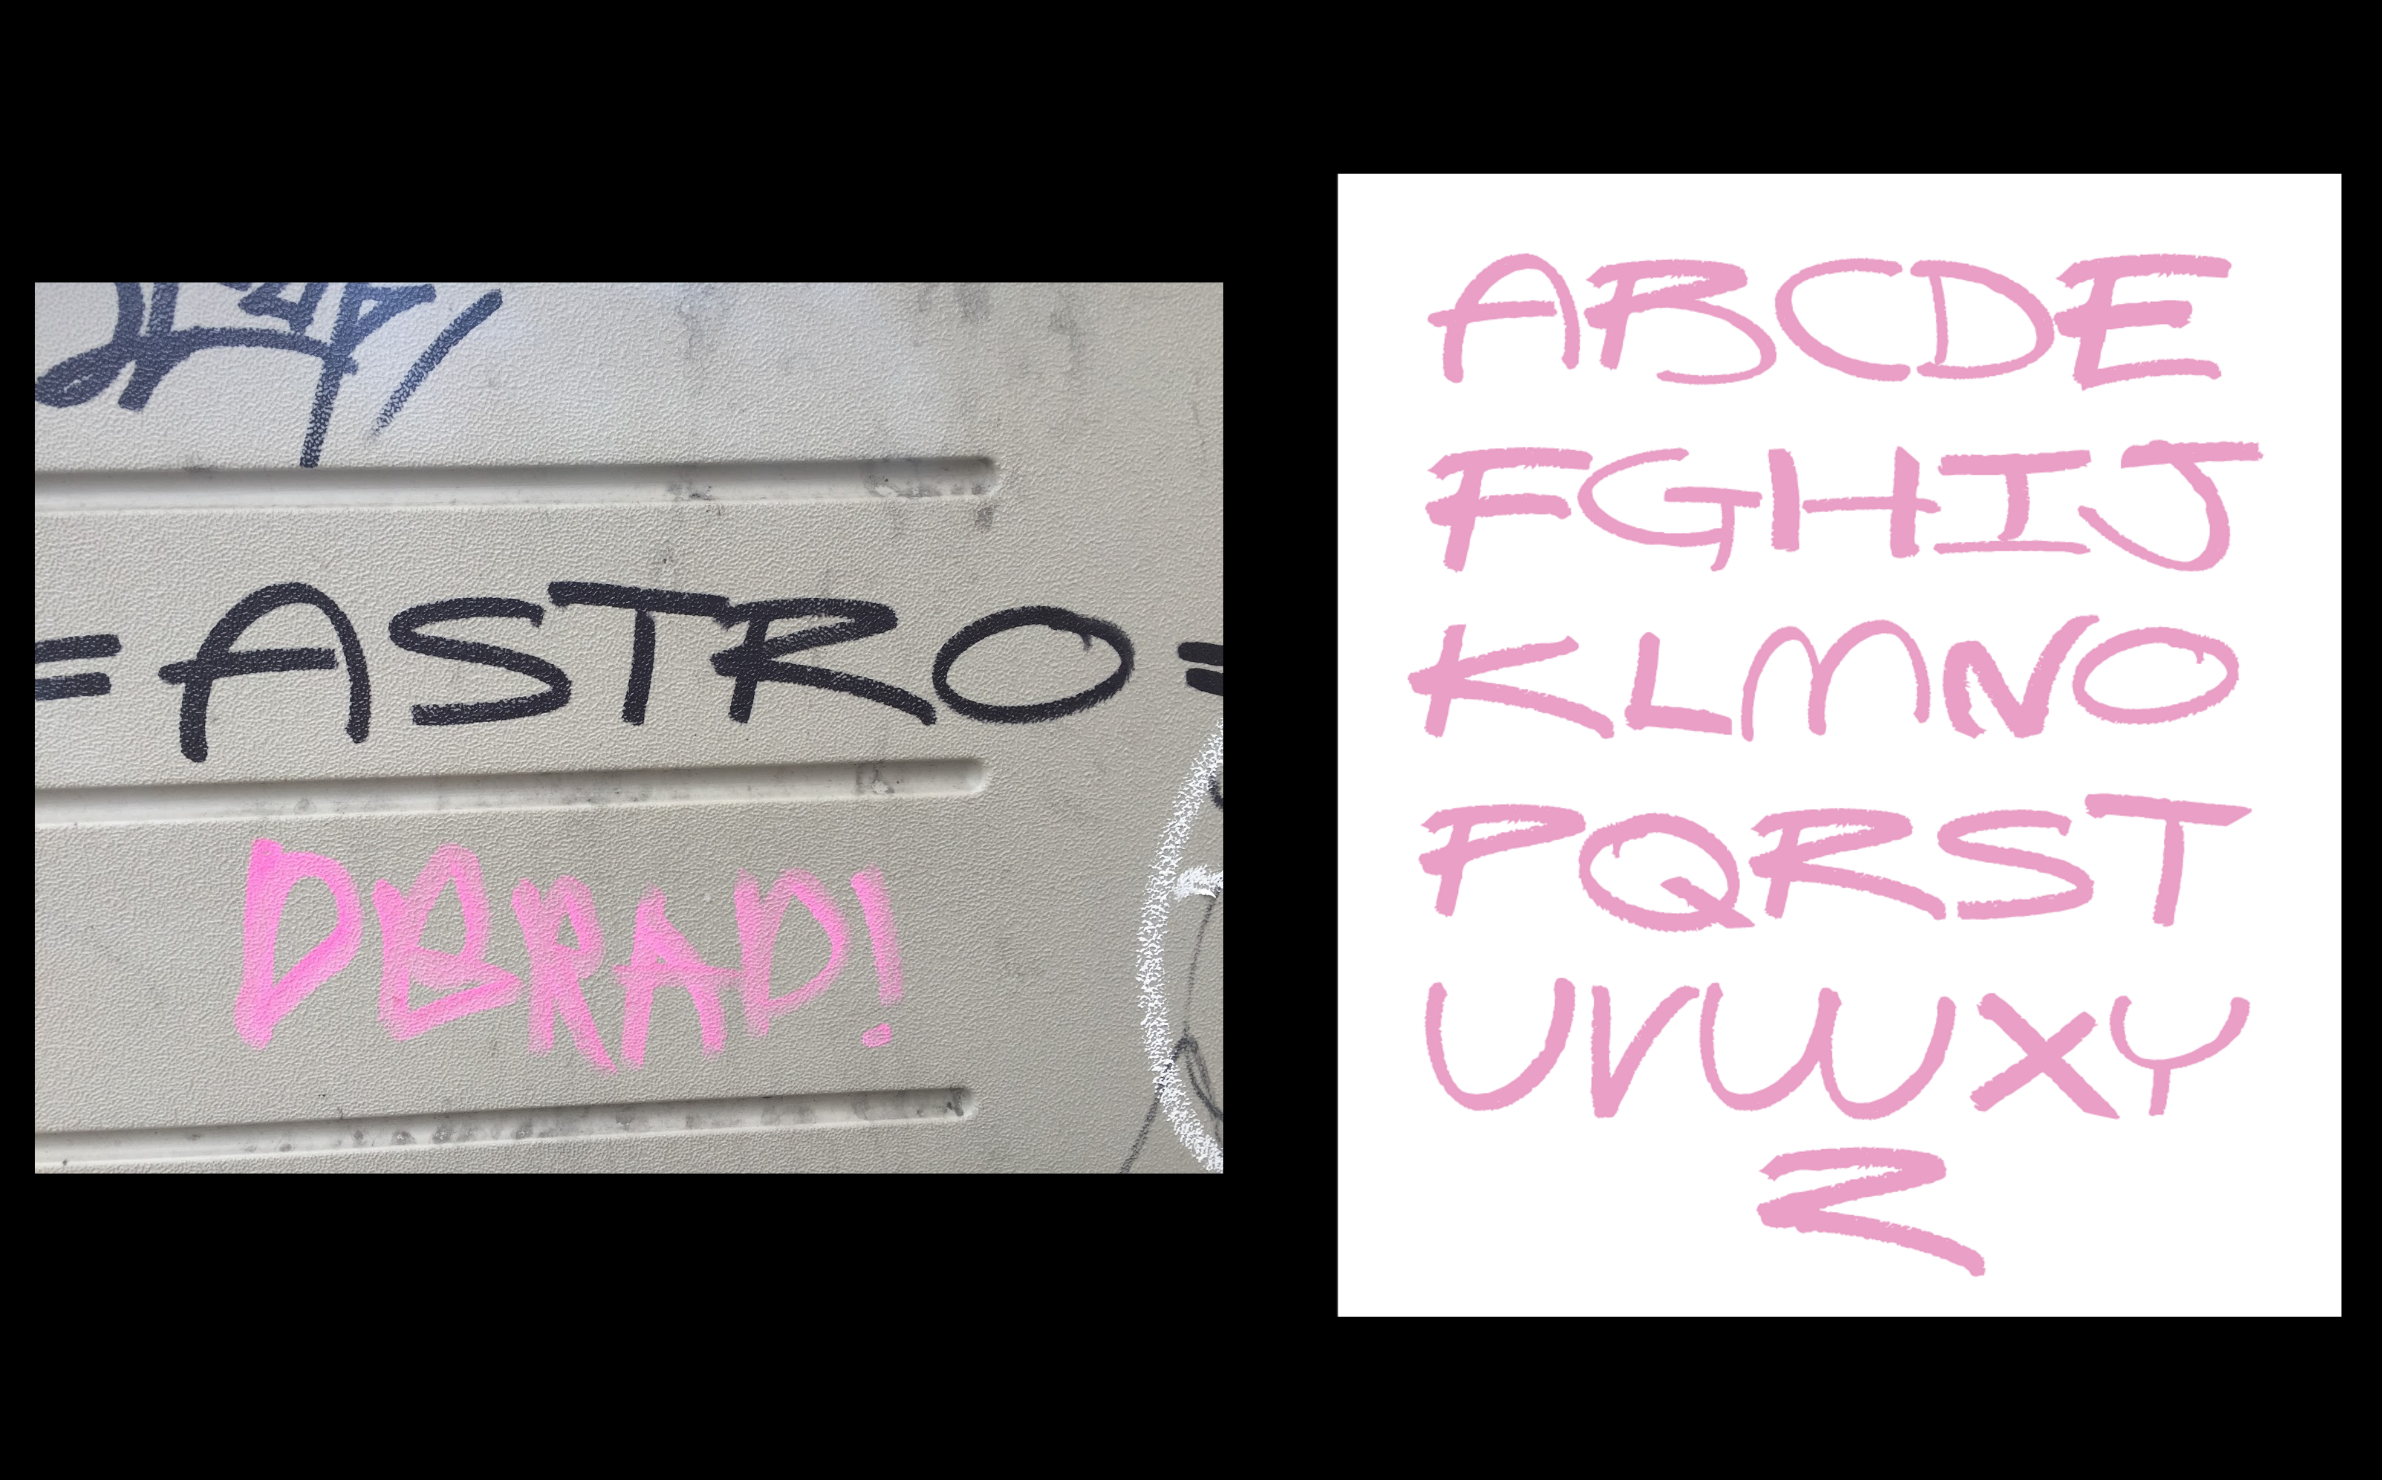 =ASTRO=
DBRAD!
ABCDE
FGHIJ
KLMNO
PQRST
UVWXY
Z